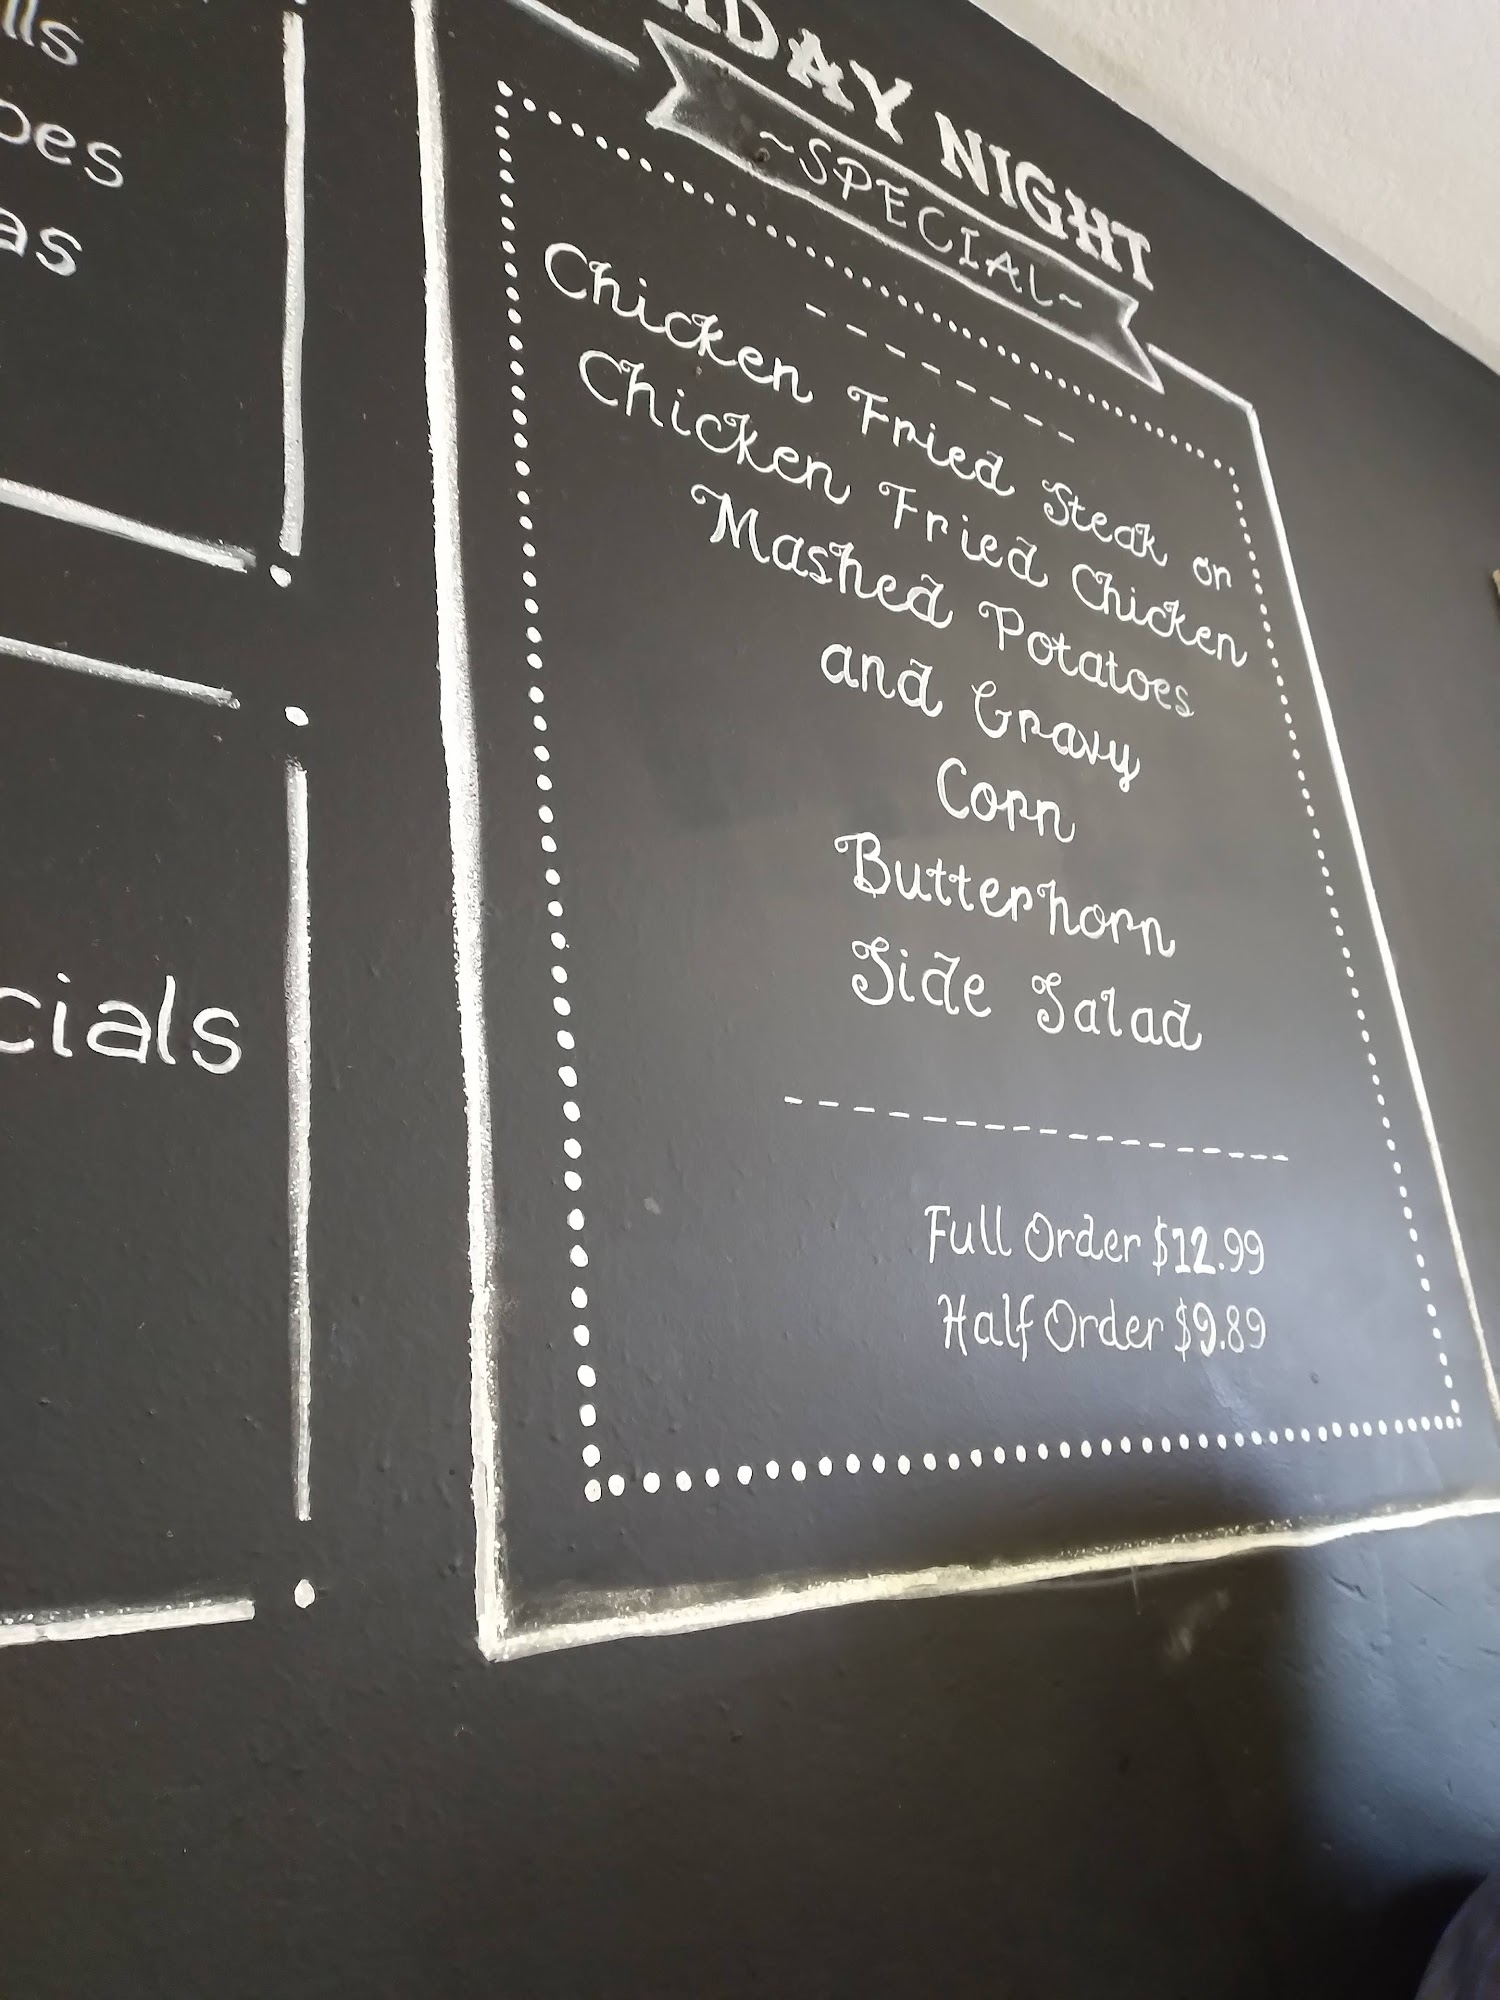 NIGHT
~SPECIAL~
Chicken Fried Steak or
Chicken Fried Chicken
Mashed Potatoes
and Gravy
Corn
Butterhorn
Side Salad
Full Order $12.99
Half Order $9.89